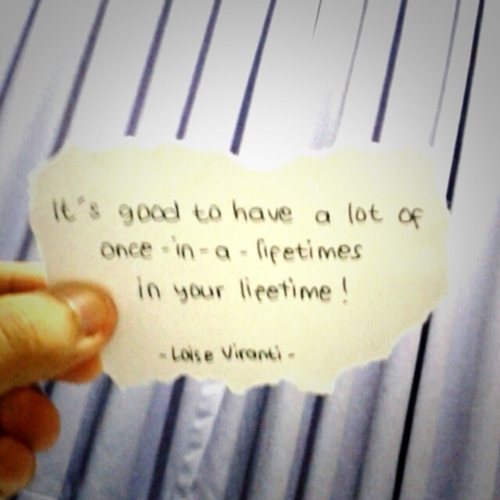 It's good to have a lot of
once-in-a-lifetimes
in your lifetime!
-Loise Viranti-